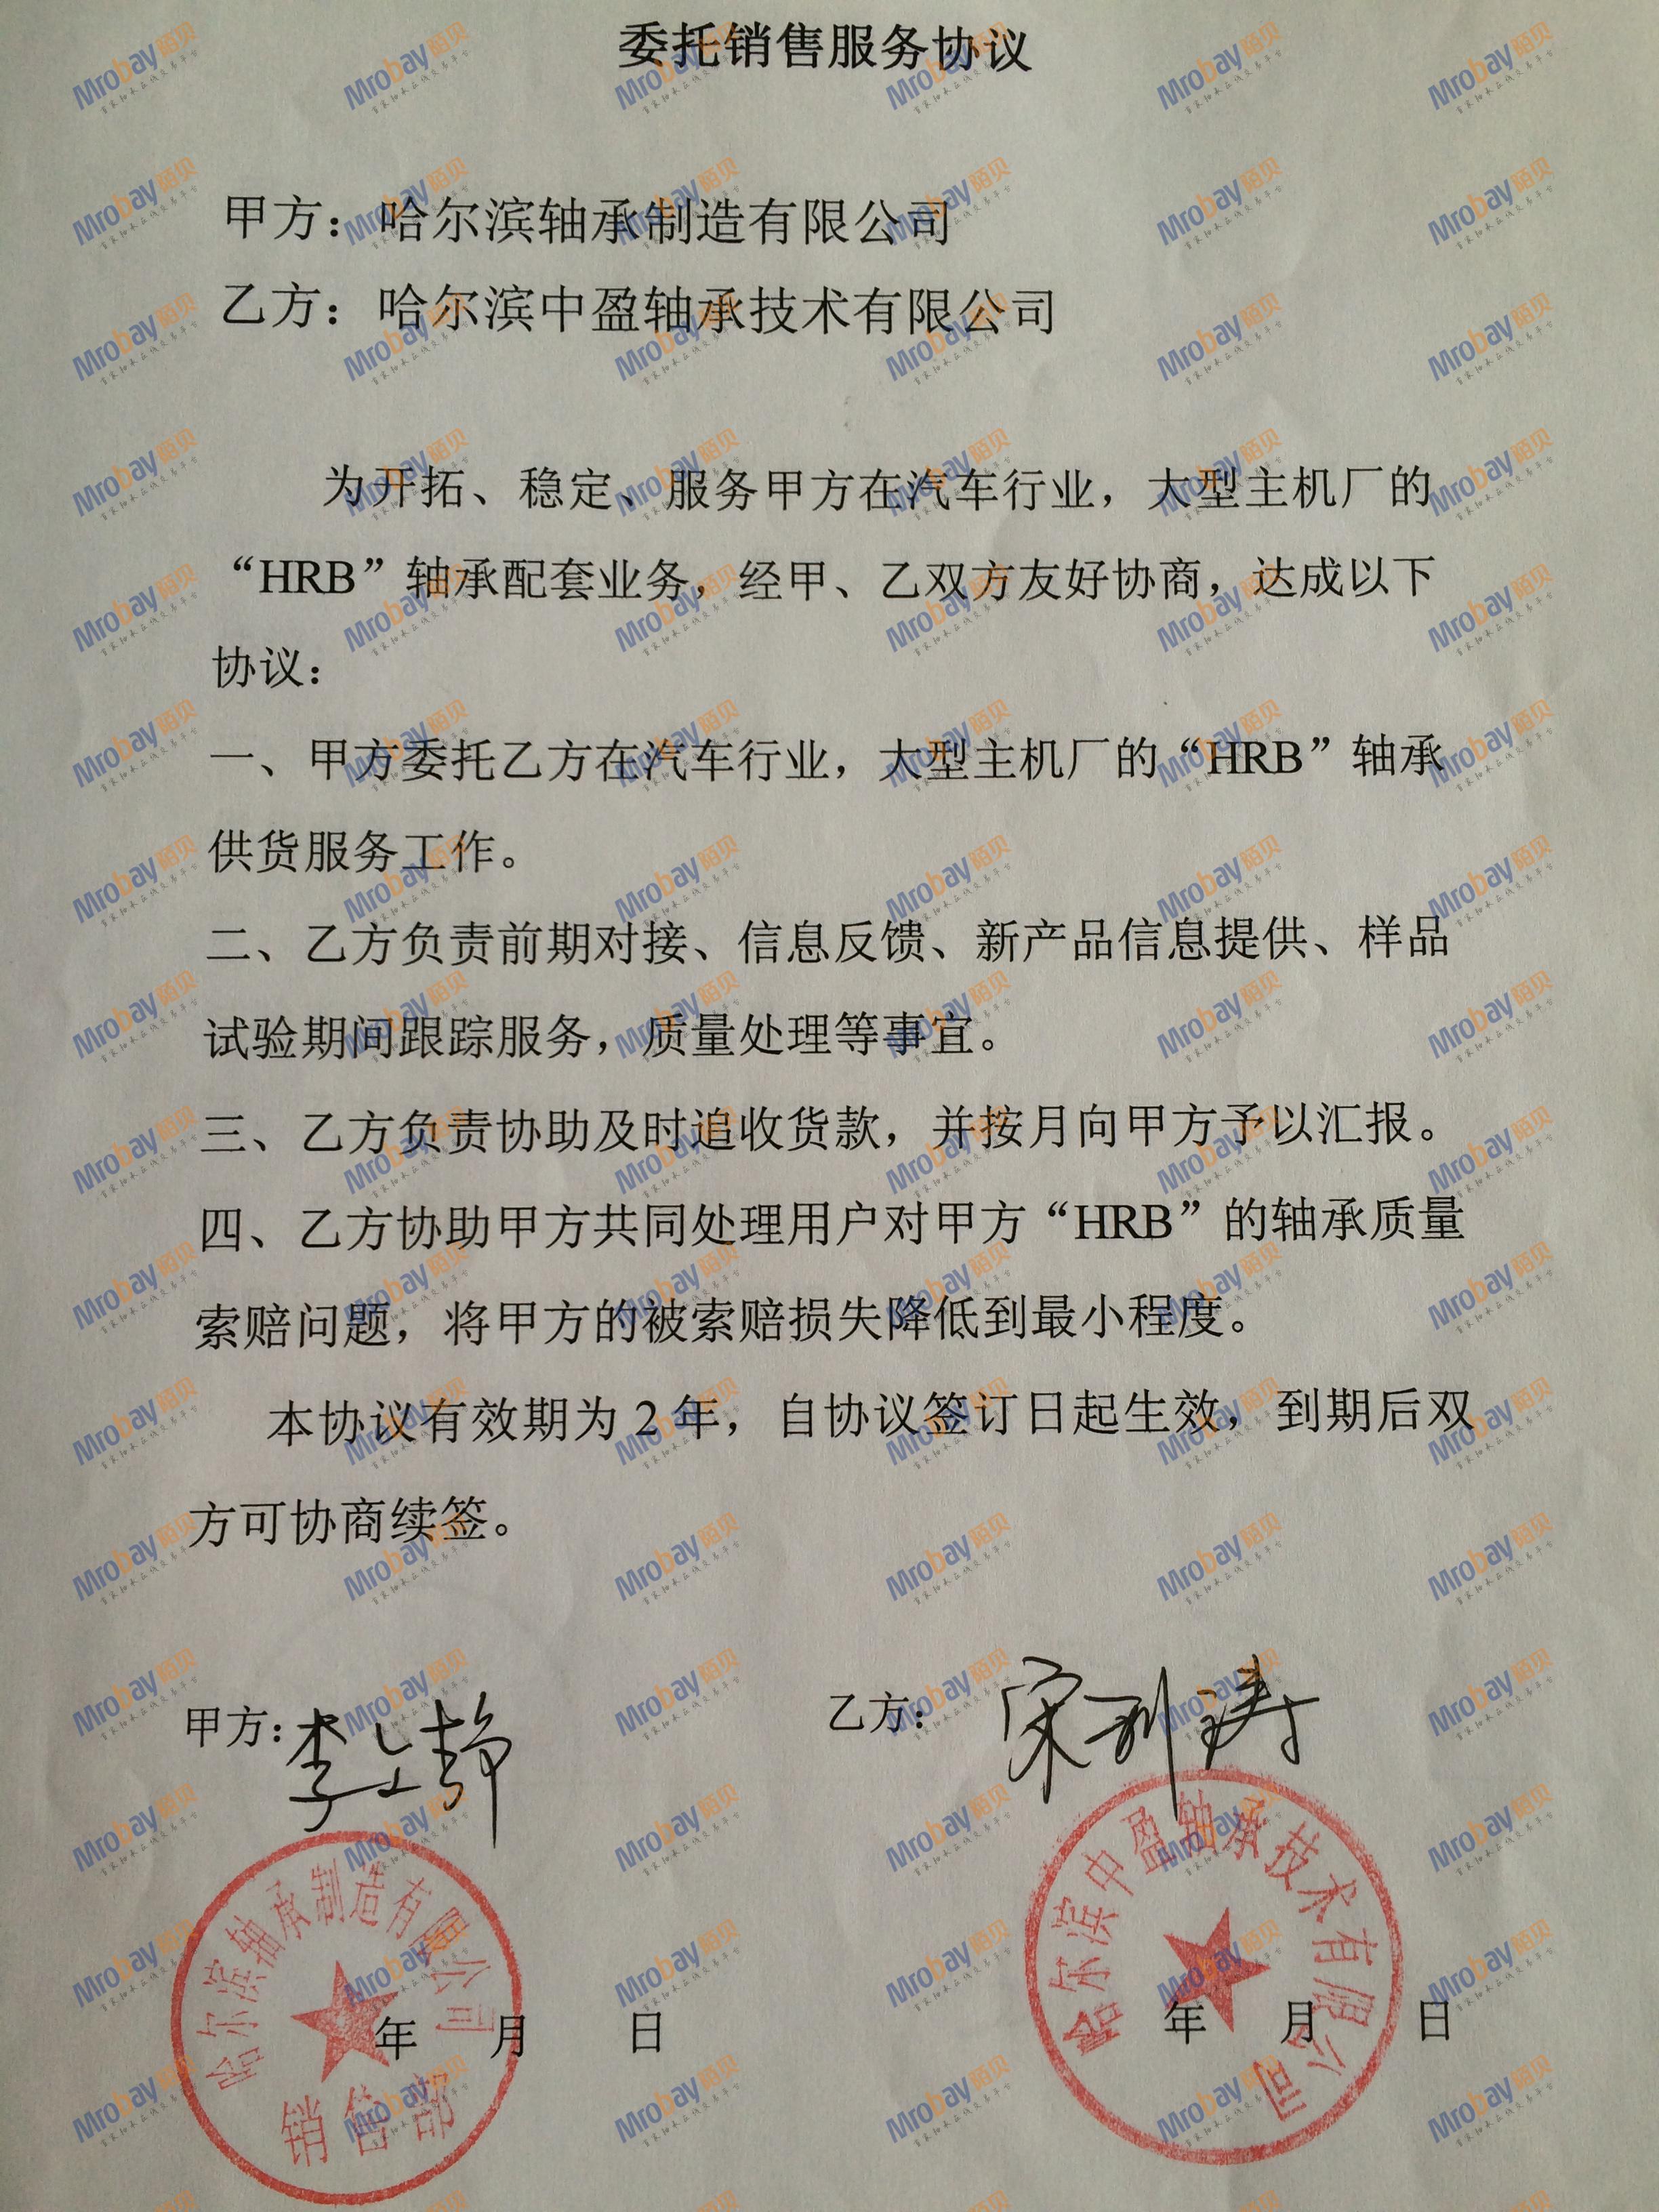 委托销售服务协议
甲方：哈尔滨轴承制造有限公司
乙方：哈尔滨中盈轴承技术有限公司
为开拓、稳定、服务甲方在汽车行业，大型主机厂的
“HRB”轴承配套业务，经甲、乙双方友好协商，达成以下
协议：
一、甲方委托乙方在汽车行业，大型主机厂的“HRB”轴承
供货服务工作。
二、乙方负责前期对接、信息反馈、新产品信息提供、样品
试验期间跟踪服务，质量处理等事宜。
三、乙方负责协助及时追收货款，并按月向甲方予以汇报。
四、乙方协助甲方共同处理用户对甲方“HRB”的轴承质量
索赔问题，将甲方的被索赔损失降低到最小程度。
本协议有效期为2年，自协议签订日起生效，到期后双
方可协商续签。
甲方：
乙方：
哈尔滨轴承制造有限公司
销售部
哈尔滨中盈轴承技术有限公司
年 月 日
年 月 日
Mrobay陌贝